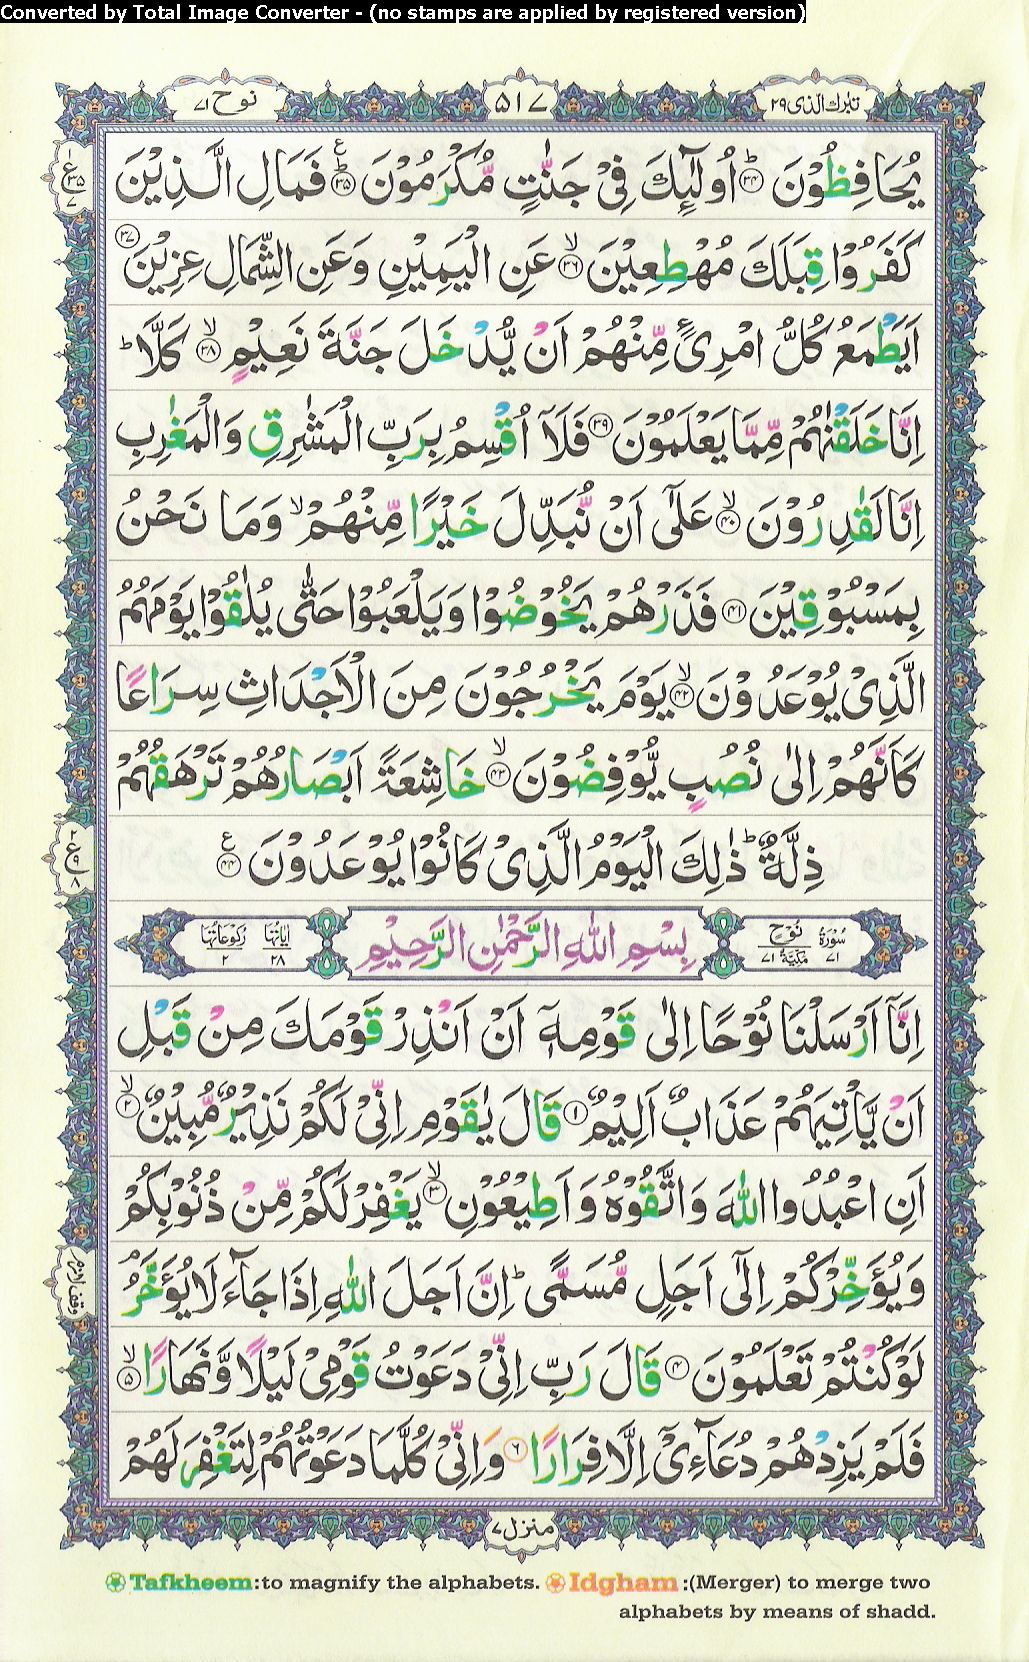 Converted by Total Image Converter - (no stamps are applied by registered version)
تبٰرك الذی ۲۹
۵۱۷
نوح ۷۱
يُحَافِظُوْنَ ۳۴ؕ اُولٰٓئِكَ فِيْ جَنّٰتٍ مُّكْرَمُوْنَ ۳۵ؕ فَمَالِ الَّذِيْنَ
كَفَرُوْا قِبَلَكَ مُهْطِعِيْنَ ۳۶ۙ عَنِ الْيَمِيْنِ وَعَنِ الشِّمَالِ عِزِيْنَ ۳۷
اَيَطْمَعُ كُلُّ امْرِئٍ مِّنْهُمْ اَنْ يُّدْخَلَ جَنَّةَ نَعِيْمٍ ۳۸ۙ كَلَّا ؕ
اِنَّا خَلَقْنٰهُمْ مِّمَّا يَعْلَمُوْنَ ۳۹ فَلَآ اُقْسِمُ بِرَبِّ الْمَشٰرِقِ وَالْمَغٰرِبِ
اِنَّا لَقٰدِرُوْنَ ۴۰ۙ عَلٰٓى اَنْ نُّبَدِّلَ خَيْرًا مِّنْهُمْ ۙ وَمَا نَحْنُ
بِمَسْبُوْقِيْنَ ۴۱ فَذَرْهُمْ يَخُوْضُوْا وَيَلْعَبُوْا حَتّٰى يُلٰقُوْا يَوْمَهُمُ
الَّذِيْ يُوْعَدُوْنَ ۴۲ۙ يَوْمَ يَخْرُجُوْنَ مِنَ الْاَجْدَاثِ سِرَاعًا
كَاَنَّهُمْ اِلٰى نُصُبٍ يُّوْفِضُوْنَ ۴۳ۙ خَاشِعَةً اَبْصَارُهُمْ تَرْهَقُهُمْ
ذِلَّةٌ ؕ ذٰلِكَ الْيَوْمُ الَّذِيْ كَانُوْا يُوْعَدُوْنَ ۴۴
سُوْرَةُ ۷۱ نُوْحٍ مَكِّيَّةٌ ۷۱
بِسْمِ اللّٰهِ الرَّحْمٰنِ الرَّحِيْمِ
اٰيَاتُهَا ۲۸ رُكُوْعَاتُهَا ۲
اِنَّآ اَرْسَلْنَا نُوْحًا اِلٰى قَوْمِهٖٓ اَنْ اَنْذِرْ قَوْمَكَ مِنْ قَبْلِ
اَنْ يَّاْتِيَهُمْ عَذَابٌ اَلِيْمٌ ۱ قَالَ يٰقَوْمِ اِنِّيْ لَكُمْ نَذِيْرٌ مُّبِيْنٌ ۲ۙ
اَنِ اعْبُدُوا اللّٰهَ وَاتَّقُوْهُ وَاَطِيْعُوْنِ ۳ۙ يَغْفِرْ لَكُمْ مِّنْ ذُنُوْبِكُمْ
وَيُؤَخِّرْكُمْ اِلٰٓى اَجَلٍ مُّسَمًّى ؕ اِنَّ اَجَلَ اللّٰهِ اِذَا جَآءَ لَا يُؤَخَّرُ ۘ
لَوْ كُنْتُمْ تَعْلَمُوْنَ ۴ قَالَ رَبِّ اِنِّيْ دَعَوْتُ قَوْمِيْ لَيْلًا وَّنَهَارًا ۵ۙ
فَلَمْ يَزِدْهُمْ دُعَآءِيْٓ اِلَّا فِرَارًا ۶ وَاِنِّيْ كُلَّمَا دَعَوْتُهُمْ لِتَغْفِرَ لَهُمْ
منزل ۷
ع ۳۵ ۷
۲ ع ۹ ۸
وقف لازم
Tafkheem:to magnify the alphabets. Idgham :(Merger) to merge two
alphabets by means of shadd.